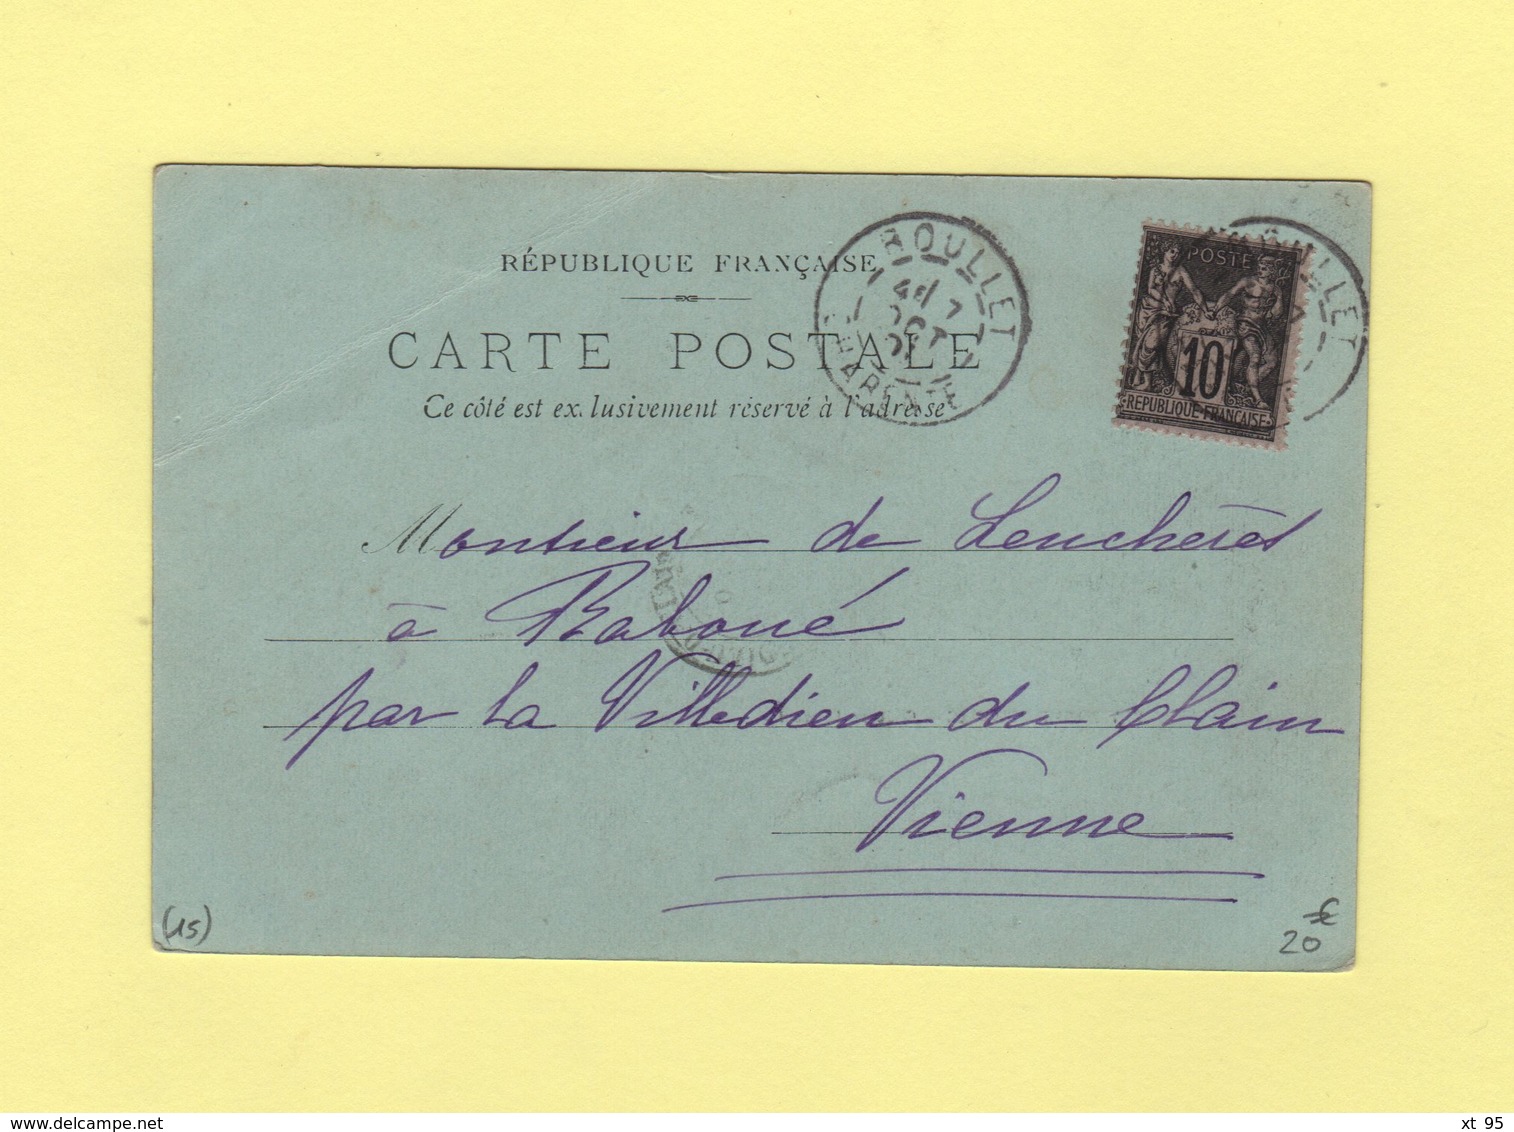 RÉPUBLIQUE FRANÇAISE
CARTE POSTALE
Ce côté est exclusivement réservé à l'adresse
ROULLET
7
OCT
CHARENTE
POSTE
10
RÉPUBLIQUE FRANÇAISE
Monsieur de Leucherès
à Raboué
par la Villedieu du Clain
Vienne
(15)
€
20
www.delcampe.net
xt 95